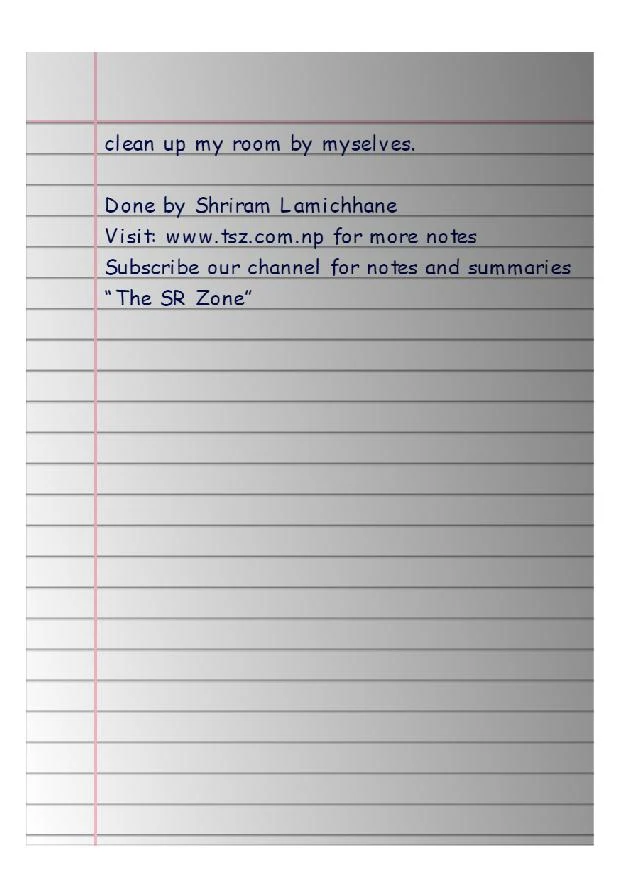 clean up my room by myselves.
Done by Shriram Lamichhane
Visit: www.tsz.com.np for more notes
Subscribe our channel for notes and summaries
“The SR Zone”